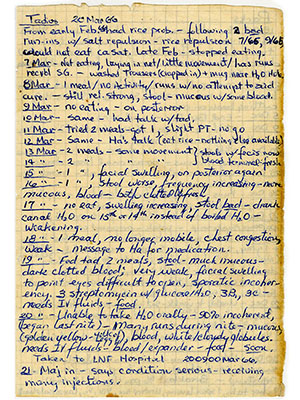 Tadios 20 Mar 66
From early Feb had rice prob. - following 2 bad
run-ins w/ salt repulsion - rice repulsion 7/65, 9/65
would not eat ca sat. late Feb - stopped eating.
7 Mar - Not eating, laying in net/little movement/has runs
recvbl SG. - washed trousers (crapped in) + mug near H2O hole.
8 Mar - 1 meal/no activity/runs w/ no attempt to said
cure. - still rel. strong, stool - mucous w/ some blood.
9 Mar - no eating - on posterior
10 Mar - same - had talk w/ tad,
11 Mar - tried 2 meals - got 1, slight PT - no go
12 Mar - Same - Ha's talk (eat rice - nothing else available)
13 Mar - 2 meals - some movement/stools w/ feces now
14 " - 2 " " / " " / blood termed fresh
15 " - 1 " , facial swelling, on posterior again
16 " - 1 " Stool worse, frequency increasing - more
mucous, blood - body cutter/fresh
17 " - no eat, swelling increasing, stool bad - drank
canal H2O on 13th or 14th instead of boiled H2O -
weakening.
18 " - 1 meal, no longer mobile, chest congestion,
weak - message to Ha for medication.
19 " - Fed tad, 2 meals, stool - much mucous -
dark clotted blood; very weak, facial swelling
to point eyes difficult to open, sporatic incoher-
ency. 3 streptomycin w/ glucose H2O, 3B, 3C -
needs IV fluids - food.
20 " - Unable to take H2O orally - 90% incoherent,
(began last nite) - Many runs during nite - mucous
(golden yellow), blood, white/cloudy globules.
needs IV fluids - blood/expander - food - soon.
Taken to LNF Hospital 200900 Mar 66.
21 Maj in - says condition serious - receiving
many injections.